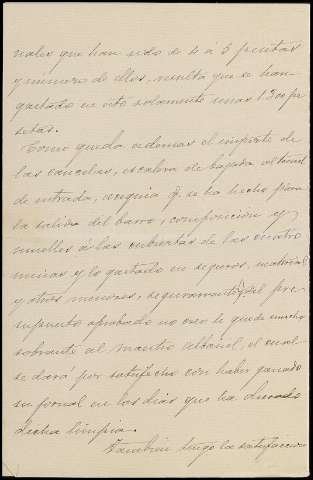 nales que han sido de 4 á 5 pesetas
y número de ellos, resulta que se han
gastado en esto solamente unas 1300 pe
setas.
Como queda ademas el importe de
las cancelas, escalera de bajada al tunel
de entrada, q. se ha hecho para
la salida del barro, composicion y
muelles á las cubiertas de las cuatro
minas y lo gastado en seguros, material
y otros menores, seguramente del pre-
supuesto aprobado no creo le quede mucho
sobrante al maestro albañil, el cual
se dará por satisfecho con haber ganado
su jornal en los dias que ha durado
dicha limpia.
Tambien tengo la satisfaccion